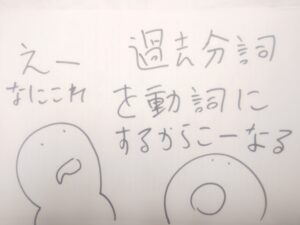 えー
なにこれ
過去分詞
を動詞に
するからこーなる